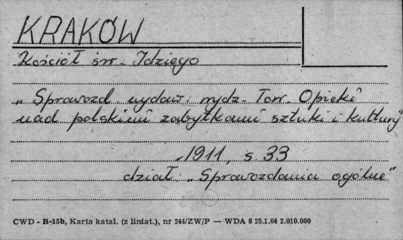 KRAKÓW
Kościół św. Idziego
„Sprawozd wydaw. wydz. Tow. Opieki
nad polskiemi zabytkami sztuki i kultury
1911, s 33
dział: „Sprawozdania ogólne"
CWD - B-15b, Karta katal. (z liniat.), nr 244/ZW/P — WDA 8 25.1.64 2.010.000